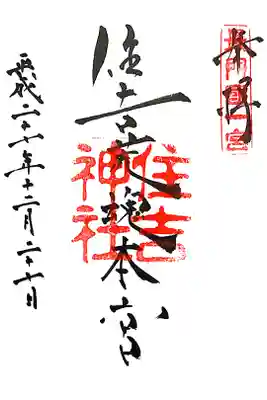 奉拝
長門國一宮
住吉荒魂本宮
住吉
神社
平成二十七年十二月二十日